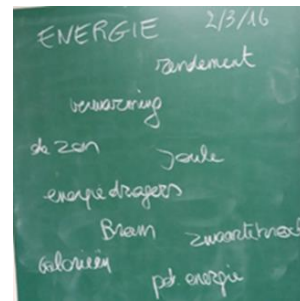 ENERGIE 2/3/16
rendement
verwarming
de zon
Joule
energiedragers
Bron
zwaartekracht
Calorieën
pot. energie